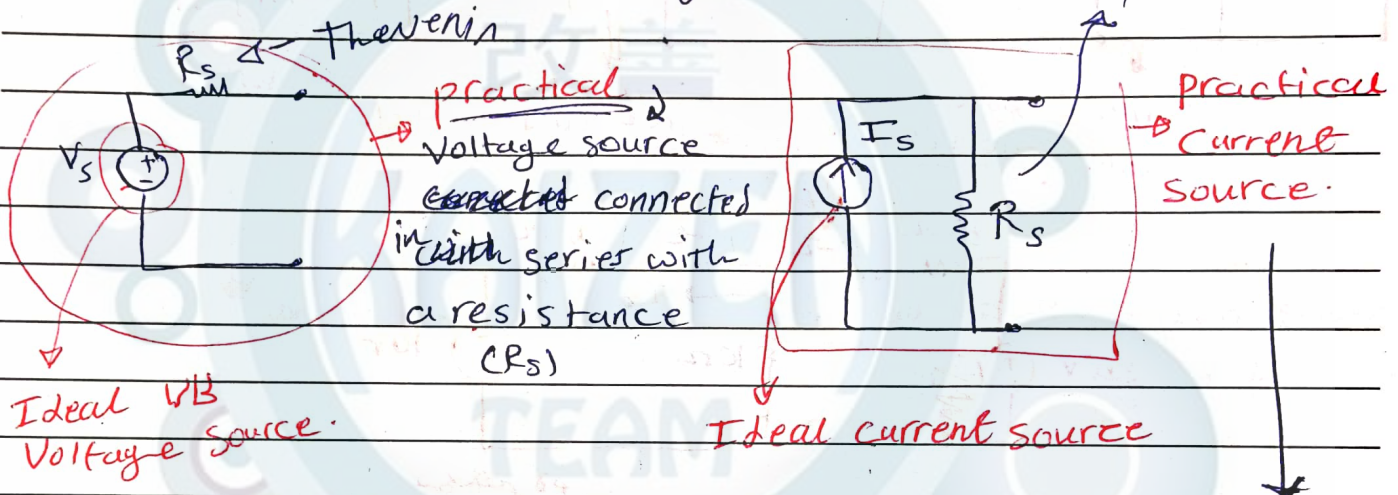 Thevenin
Rs
Vs
+
-
practical
Voltage source
connected
in series with
a resistance
(Rs)
Ideal
Voltage source.
Is
Rs
Practical
Current
source.
Ideal current source
改善
KAIZEN
TEAM